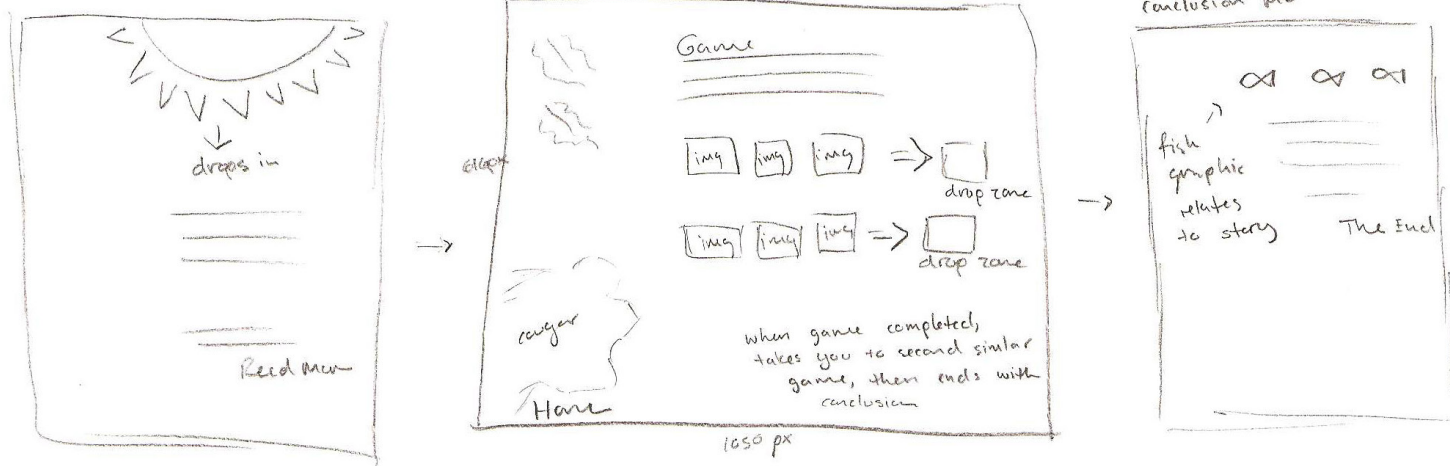 drops in
Read More
Game
img img img
drop zone
img img img
drop zone
cougar
Home
when game completed,
takes you to second similar
game, then ends with
conclusion
1050 px
conclusion
fish
graphic
relates
to story
The End